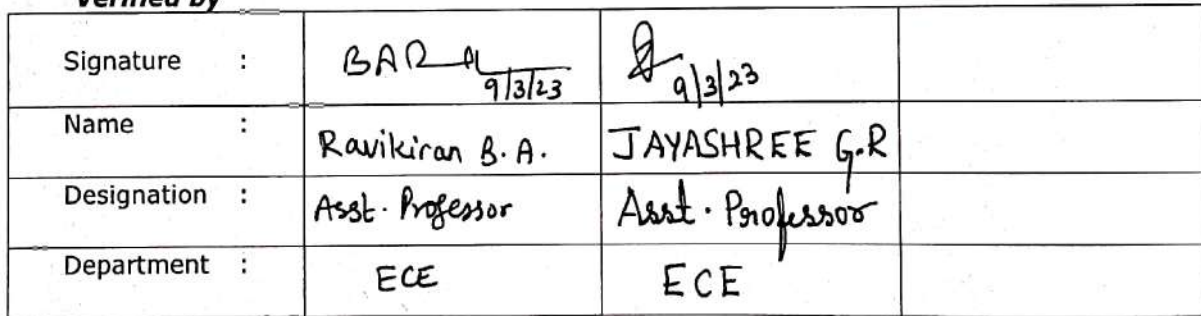 Verified by
Signature : BAR 9/3/23 9/3/23
Name : Ravikiran B. A. JAYASHREE G.R
Designation : Asst. Professor Asst. Professor
Department : ECE ECE